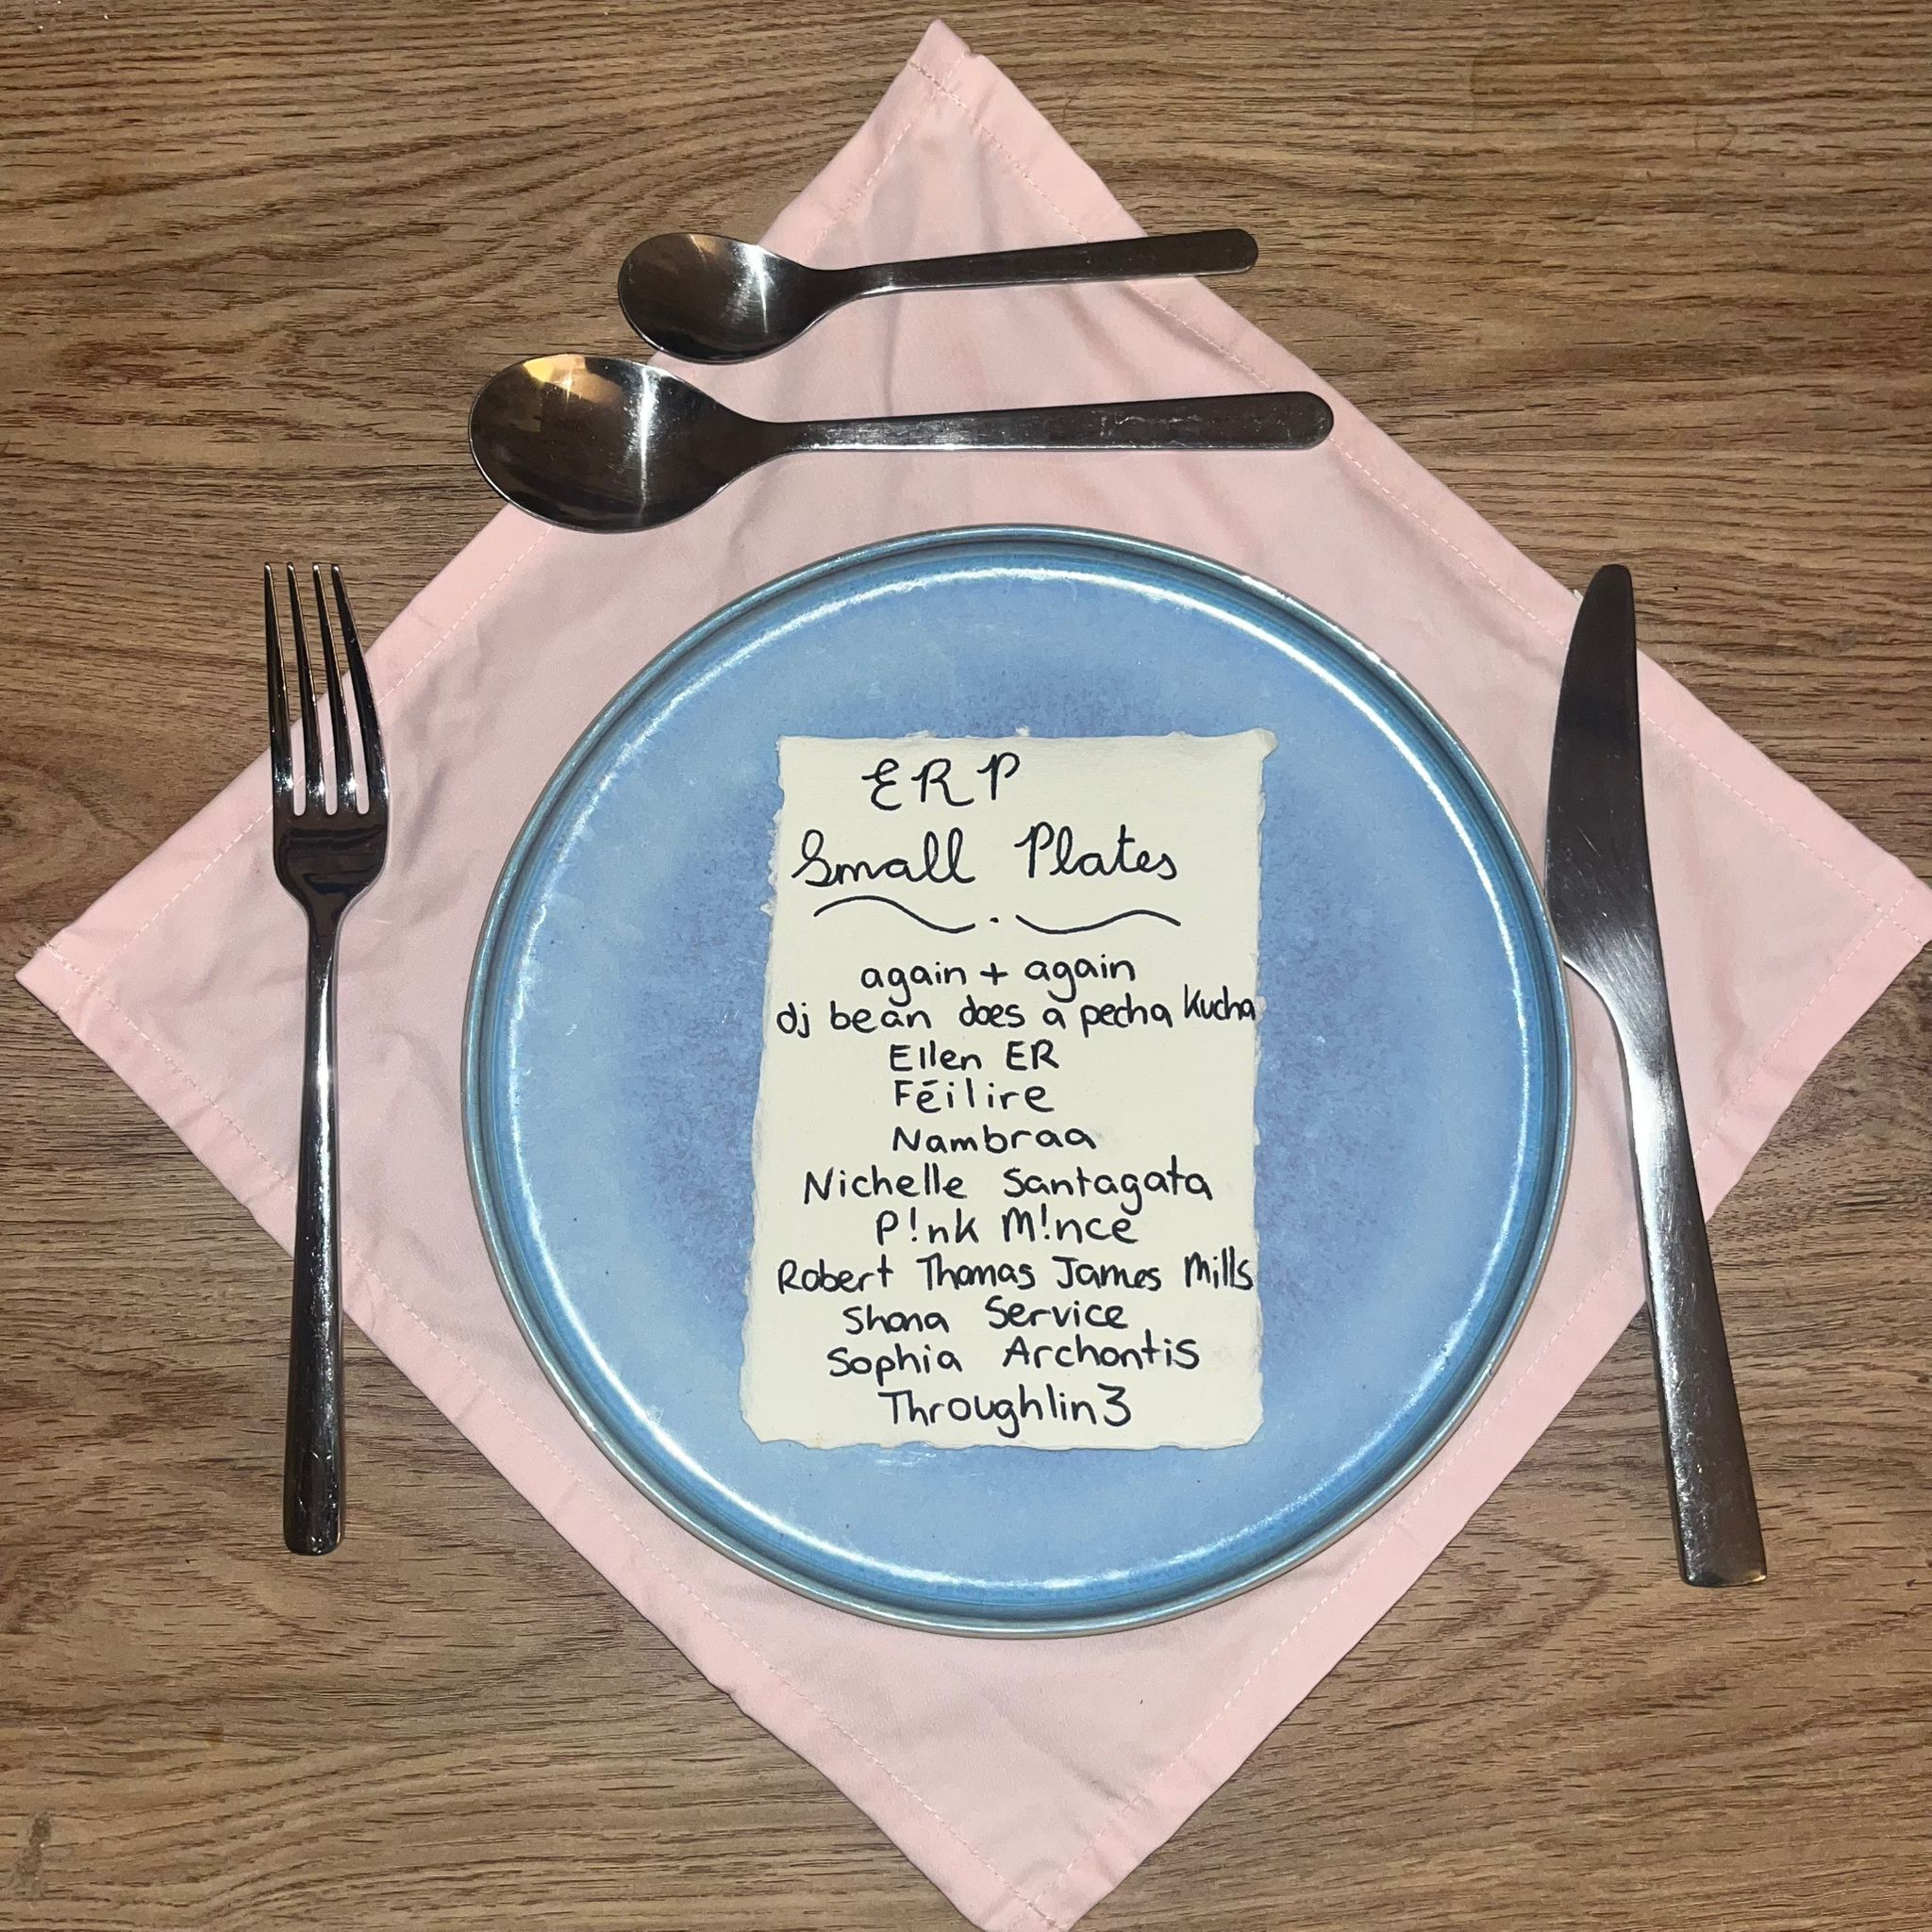 ERP
Small Plates
again + again
dj bean does a pecha Kucha
Ellen ER
Féilire
Nambraa
Nichelle Santagata
P!nk M!nce
Robert Thomas James Mills
Shona Service
Sophia Archontis
Throughlin3